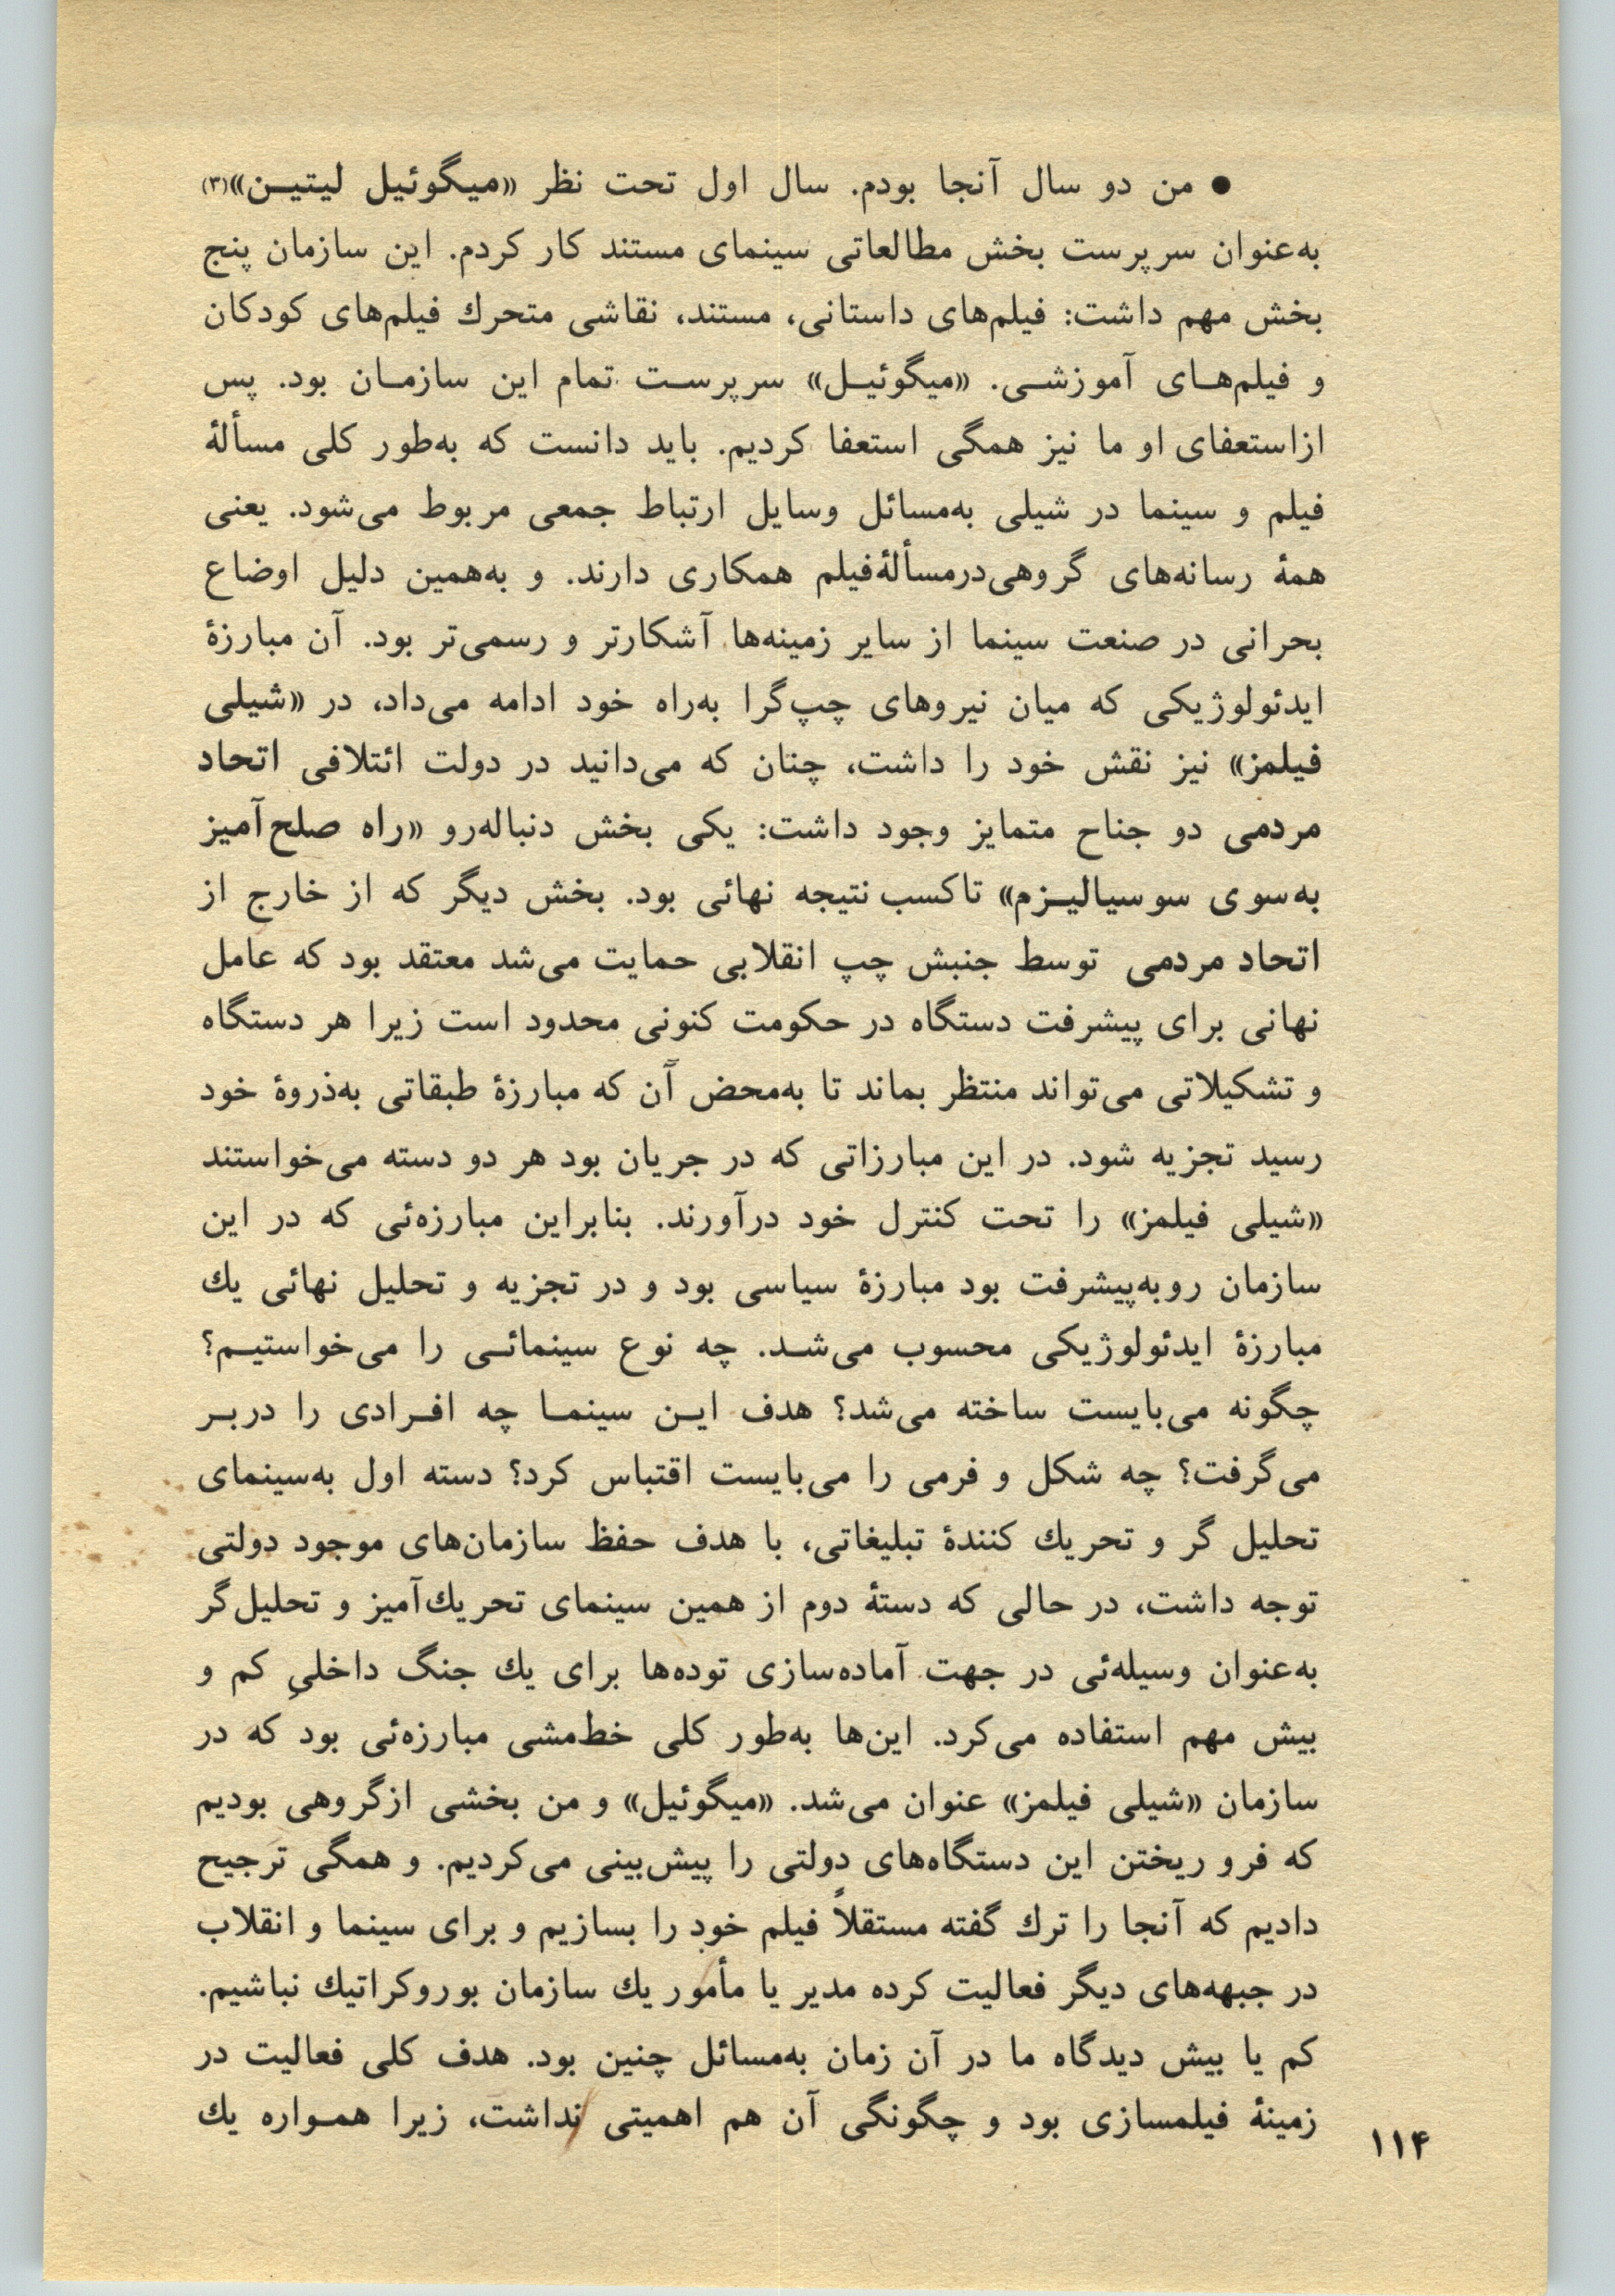 ● من دو سال آنجا بودم. سال اول تحت نظر «میگوئیل لیتیـن»(۳)
به‌عنوان سرپرست بخش مطالعاتی سینمای مستند کار کردم. این سازمان پنج
بخش مهم داشت: فیلم‌های داستانی، مستند، نقاشی متحرك فیلم‌های کودکان
و فیلم‌هـای آموزشـی. «میگوئیـل» سرپرسـت تمام این سازمـان بود. پس
ازاستعفای او ما نیز همگی استعفا کردیم. باید دانست که به‌طور کلی مسألهٔ
فیلم و سینما در شیلی به‌مسائل وسایل ارتباط جمعی مربوط می‌شود. یعنی
همهٔ رسانه‌های گروهی‌درمسألهٔ‌فیلم همکاری دارند. و به‌همین دلیل اوضاع
بحرانی در صنعت سینما از سایر زمینه‌ها آشکارتر و رسمی‌تر بود. آن مبارزهٔ
ایدئولوژیکی که میان نیروهای چپ‌گرا به‌راه خود ادامه می‌داد، در «شیلی
فیلمز» نیز نقش خود را داشت، چنان که می‌دانید در دولت ائتلافی اتحاد
مردمی دو جناح متمایز وجود داشت: یکی بخش دنباله‌رو «راه صلح‌آمیز
به‌سوی سوسیالیـزم» تاکسب نتیجه نهائی بود. بخش دیگر که از خارج از
اتحاد مردمی توسط جنبش چپ انقلابی حمایت می‌شد معتقد بود که عامل
نهانی برای پیشرفت دستگاه در حکومت کنونی محدود است زیرا هر دستگاه
و تشکیلاتی می‌تواند منتظر بماند تا به‌محض آن که مبارزهٔ طبقاتی به‌ذروهٔ خود
رسید تجزیه شود. در این مبارزاتی که در جریان بود هر دو دسته می‌خواستند
«شیلی فیلمز» را تحت کنترل خود درآورند. بنابراین مبارزه‌ئی که در این
سازمان روبه‌پیشرفت بود مبارزهٔ سیاسی بود و در تجزیه و تحلیل نهائی یك
مبارزهٔ ایدئولوژیکی محسوب می‌شـد. چه نوع سینمائـی را می‌خواستیـم؟
چگونه می‌بایست ساخته می‌شد؟ هدف ایـن سینمـا چه افـرادی را دربـر
می‌گرفت؟ چه شکل و فرمی را می‌بایست اقتباس کرد؟ دسته اول به‌سینمای
تحلیل گر و تحریك کنندهٔ تبلیغاتی، با هدف حفظ سازمان‌های موجود دولتی
توجه داشت، در حالی که دستهٔ دوم از همین سینمای تحریك‌آمیز و تحلیل‌گر
به‌عنوان وسیله‌ئی در جهت آماده‌سازی توده‌ها برای یك جنگ داخلیِ کم و
بیش مهم استفاده می‌کرد. این‌ها به‌طور کلی خط‌مشی مبارزه‌ئی بود که در
سازمان «شیلی فیلمز» عنوان می‌شد. «میگوئیل» و من بخشی ازگروهی بودیم
که فرو ریختن این دستگاه‌های دولتی را پیش‌بینی می‌کردیم. و همگی ترجیح
دادیم که آنجا را ترك گفته مستقلاً فیلم خود را بسازیم و برای سینما و انقلاب
در جبهه‌های دیگر فعالیت کرده مدیر یا مأمور یك سازمان بوروکراتیك نباشیم.
کم یا بیش دیدگاه ما در آن زمان به‌مسائل چنین بود. هدف کلی فعالیت در
زمینهٔ فیلمسازی بود و چگونگی آن هم اهمیتی نداشت، زیرا همـواره یك
۱۱۴